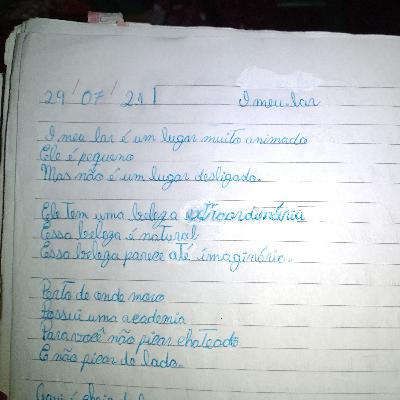 29/07/21
I meu lar
I meu lar é um lugar muito animado
Ele é pequeno
Mas não é um lugar desligado.
Ele tem uma beleza extraordinária
Essa beleza é natural
Essa beleza parece até imaginária.
Perto de onde moro
Possui uma academia
Para você não picar chateado
E não picar de lado.